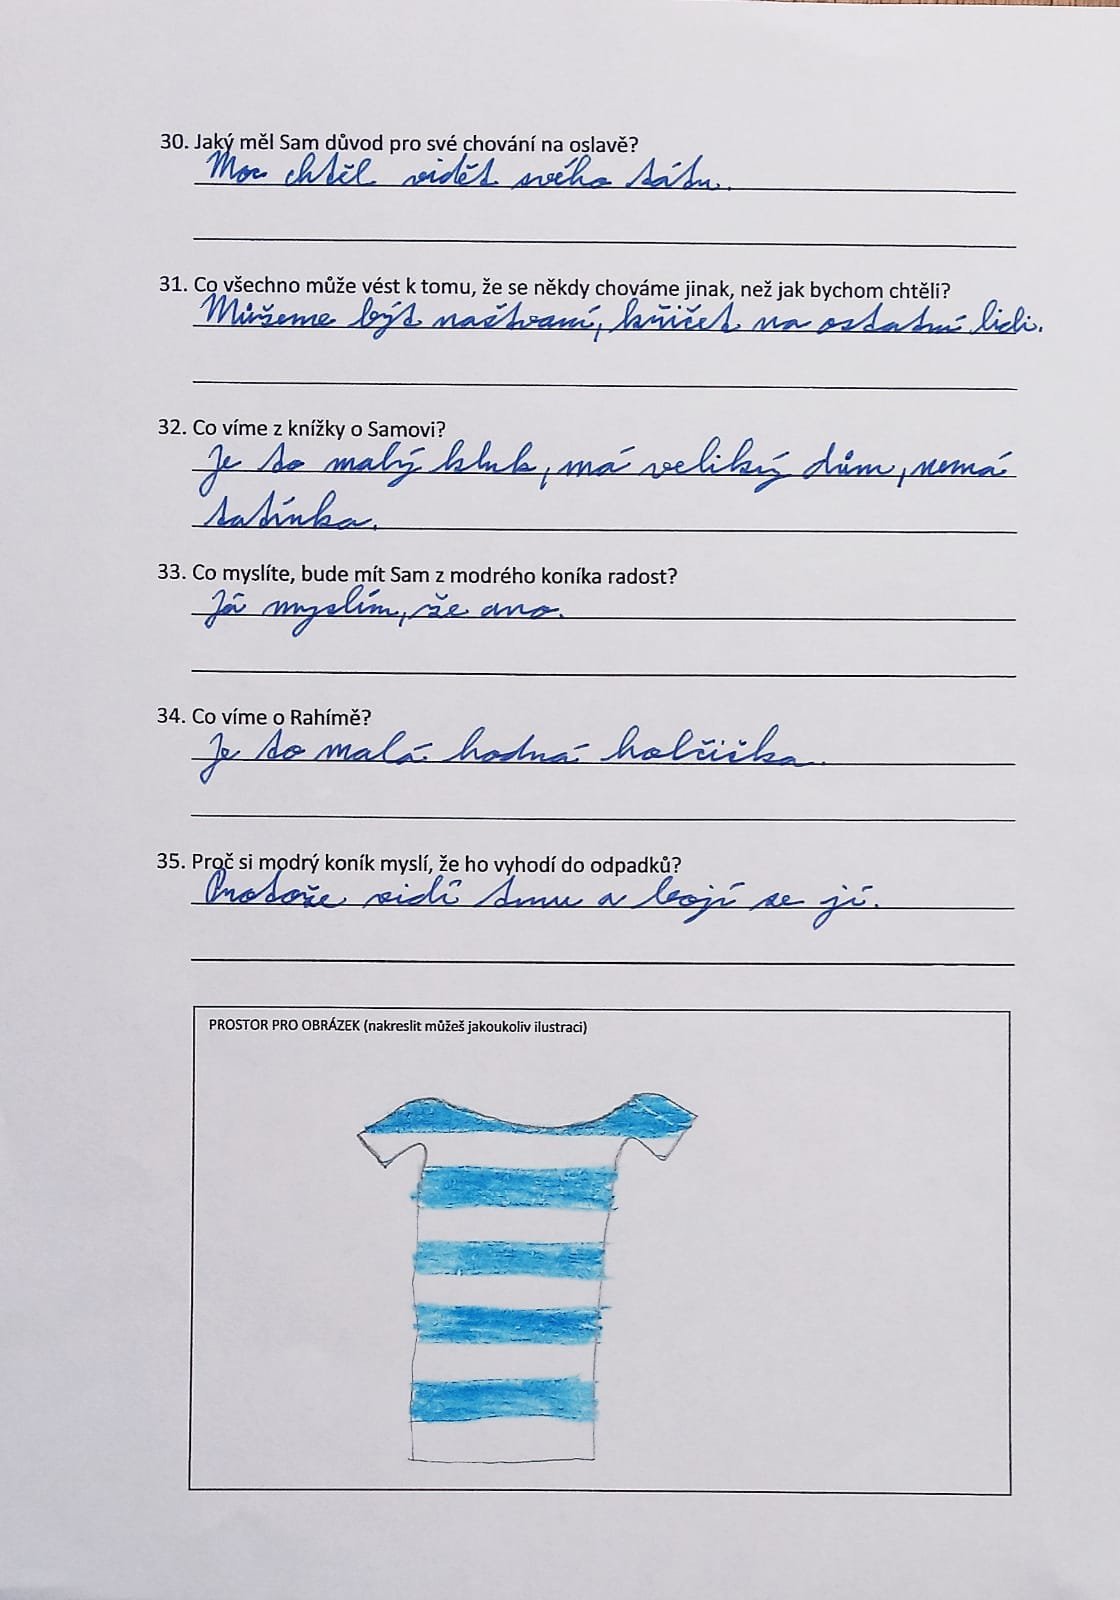 30. Jaký měl Sam důvod pro své chování na oslavě?
Moc chtěl vidět svého tátu.
31. Co všechno může vést k tomu, že se někdy chováme jinak, než jak bychom chtěli?
Můžeme být naštvaní, křičet na ostatní lidi.
32. Co víme z knížky o Samovi?
Je to malý kluk, má veliký dům, nemá
tatínka.
33. Co myslíte, bude mít Sam z modrého koníka radost?
Já myslím, že ano.
34. Co víme o Rahímě?
Je to malá hodná holčička.
35. Proč si modrý koník myslí, že ho vyhodí do odpadků?
Protože vidí tmu a bojí se jí.
PROSTOR PRO OBRÁZEK (nakreslit můžeš jakoukoliv ilustraci)